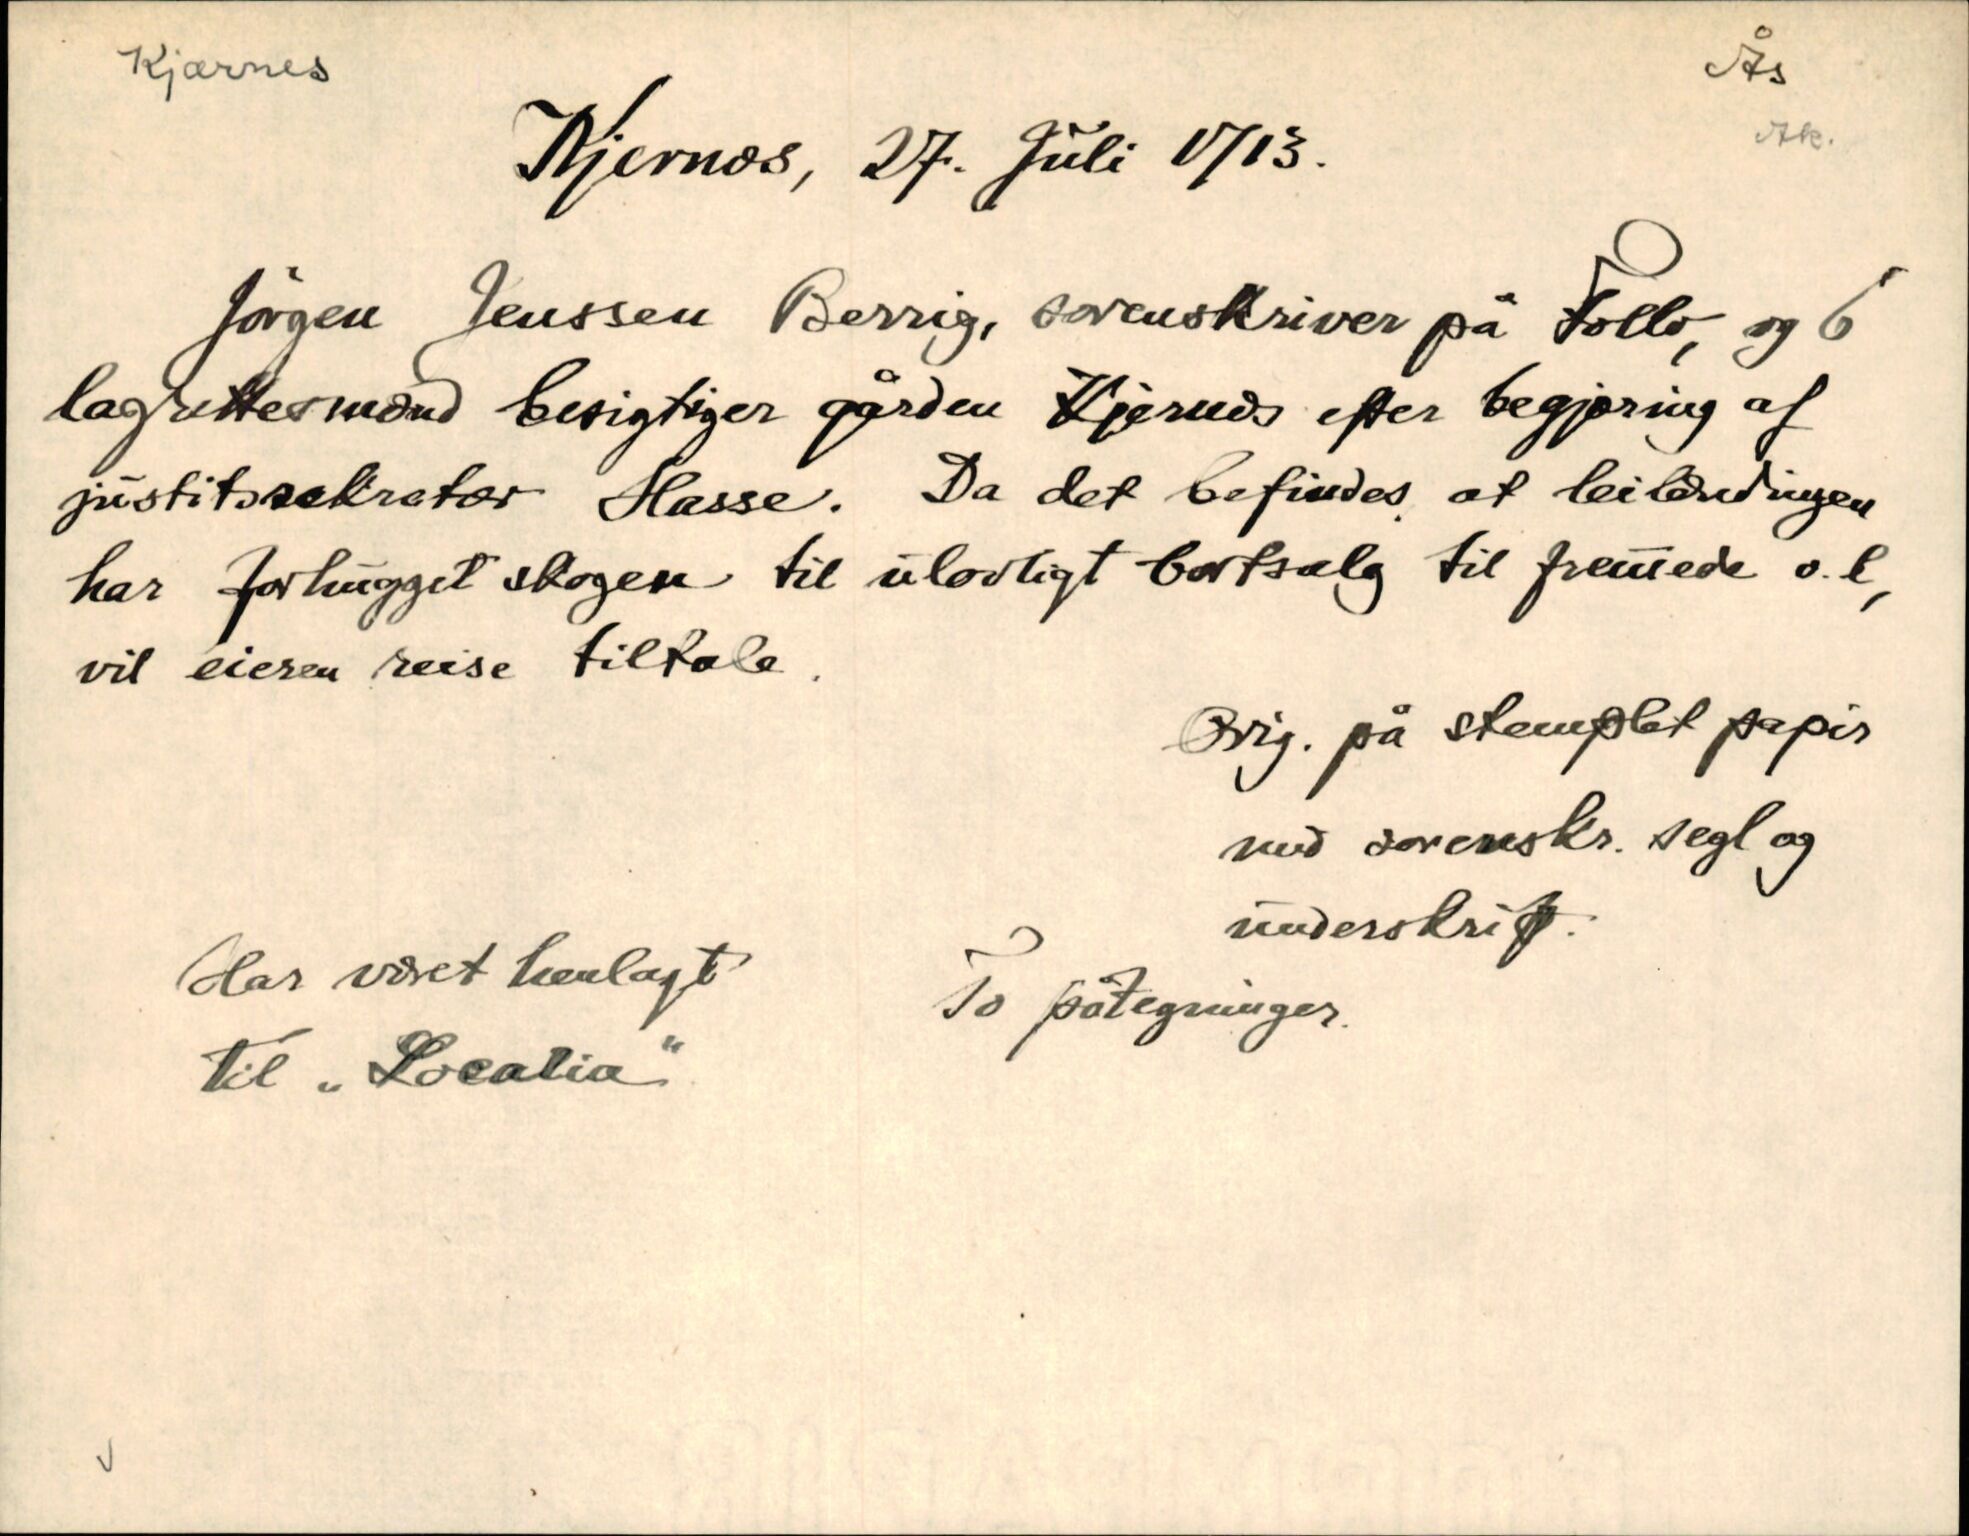 Kjærnes
Ås
Ak.
Kjernæs, 27. Juli 1713.
Jörgen Jenssen Berrig, sorenskriver på Follo, og 6
lagrettesmænd besigtiger gården Kjernæs efter begjæring af
justitssekretær Hasse. Da det befindes, at leilændingen
har forhugget skogen til ulovligt bortsalg til fremede o. l,
vil eieren reise tiltale.
Orig. på stemplet papir
med sorenskr. segl og
underskrift.
Har været henlagt
til „Localia“
To påtegninger.